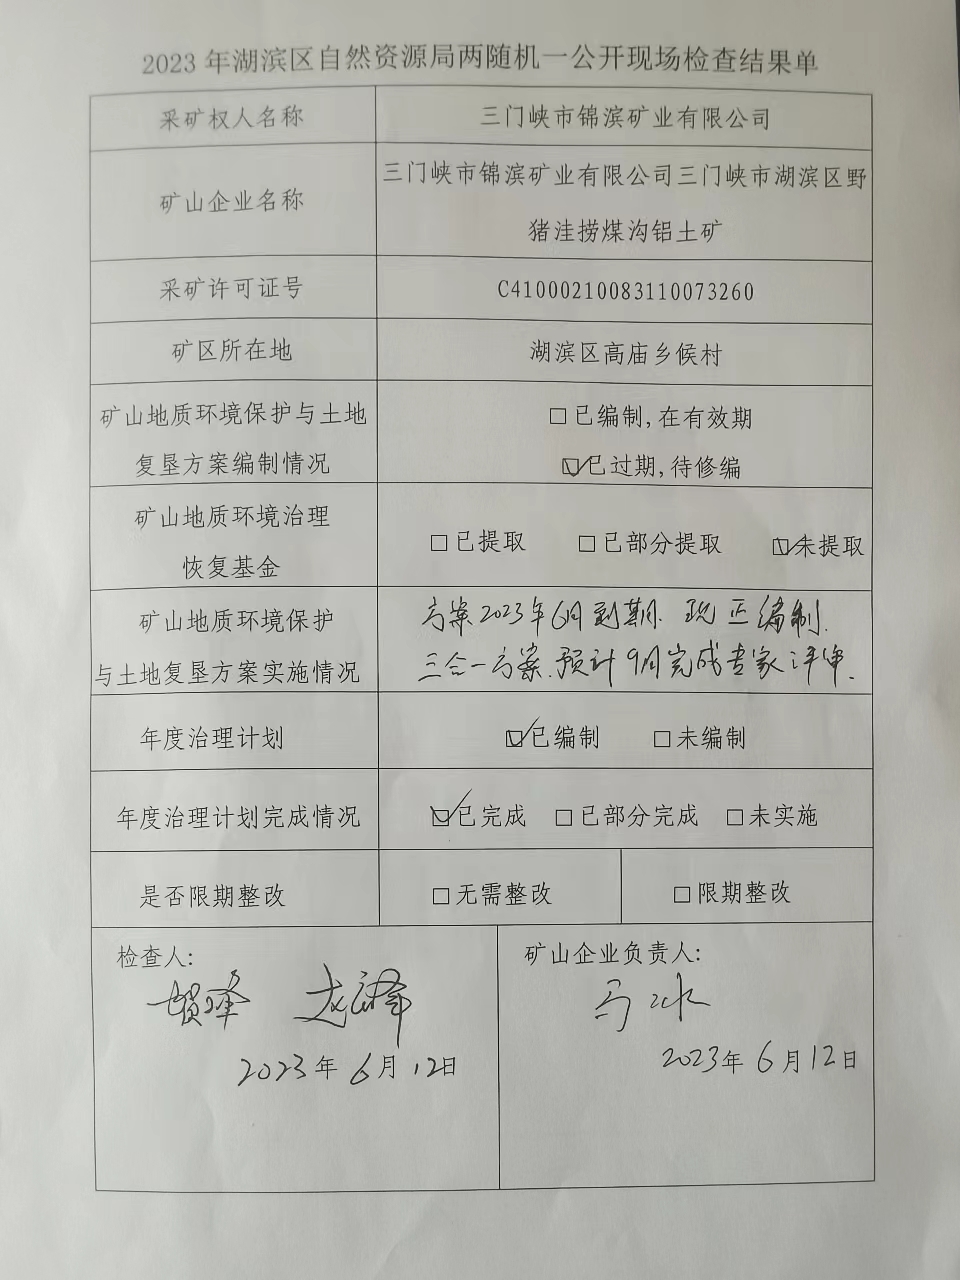 2023年湖滨区自然资源局两随机一公开现场检查结果单
采矿权人名称
三门峡市锦滨矿业有限公司
矿山企业名称
三门峡市锦滨矿业有限公司三门峡市湖滨区野
猪洼捞煤沟铝土矿
采矿许可证号
C4100021008311007326​0
矿区所在地
湖滨区高庙乡侯村
矿山地质环境保护与土地
复垦方案编制情况
□已编制,在有效期
☑已过期,待修编
矿山地质环境治理
恢复基金
□已提取 □已部分提取 ☑未提取
矿山地质环境保护
与土地复垦方案实施情况
方案2023年6月到期.现正编制.
三合一方案.预计9月完成专家评审.
年度治理计划
☑已编制 □未编制
年度治理计划完成情况
☑已完成 □已部分完成 □未实施
是否限期整改
□无需整改 □限期整改
检查人:
2023年6月12日
矿山企业负责人:
2023年6月12日